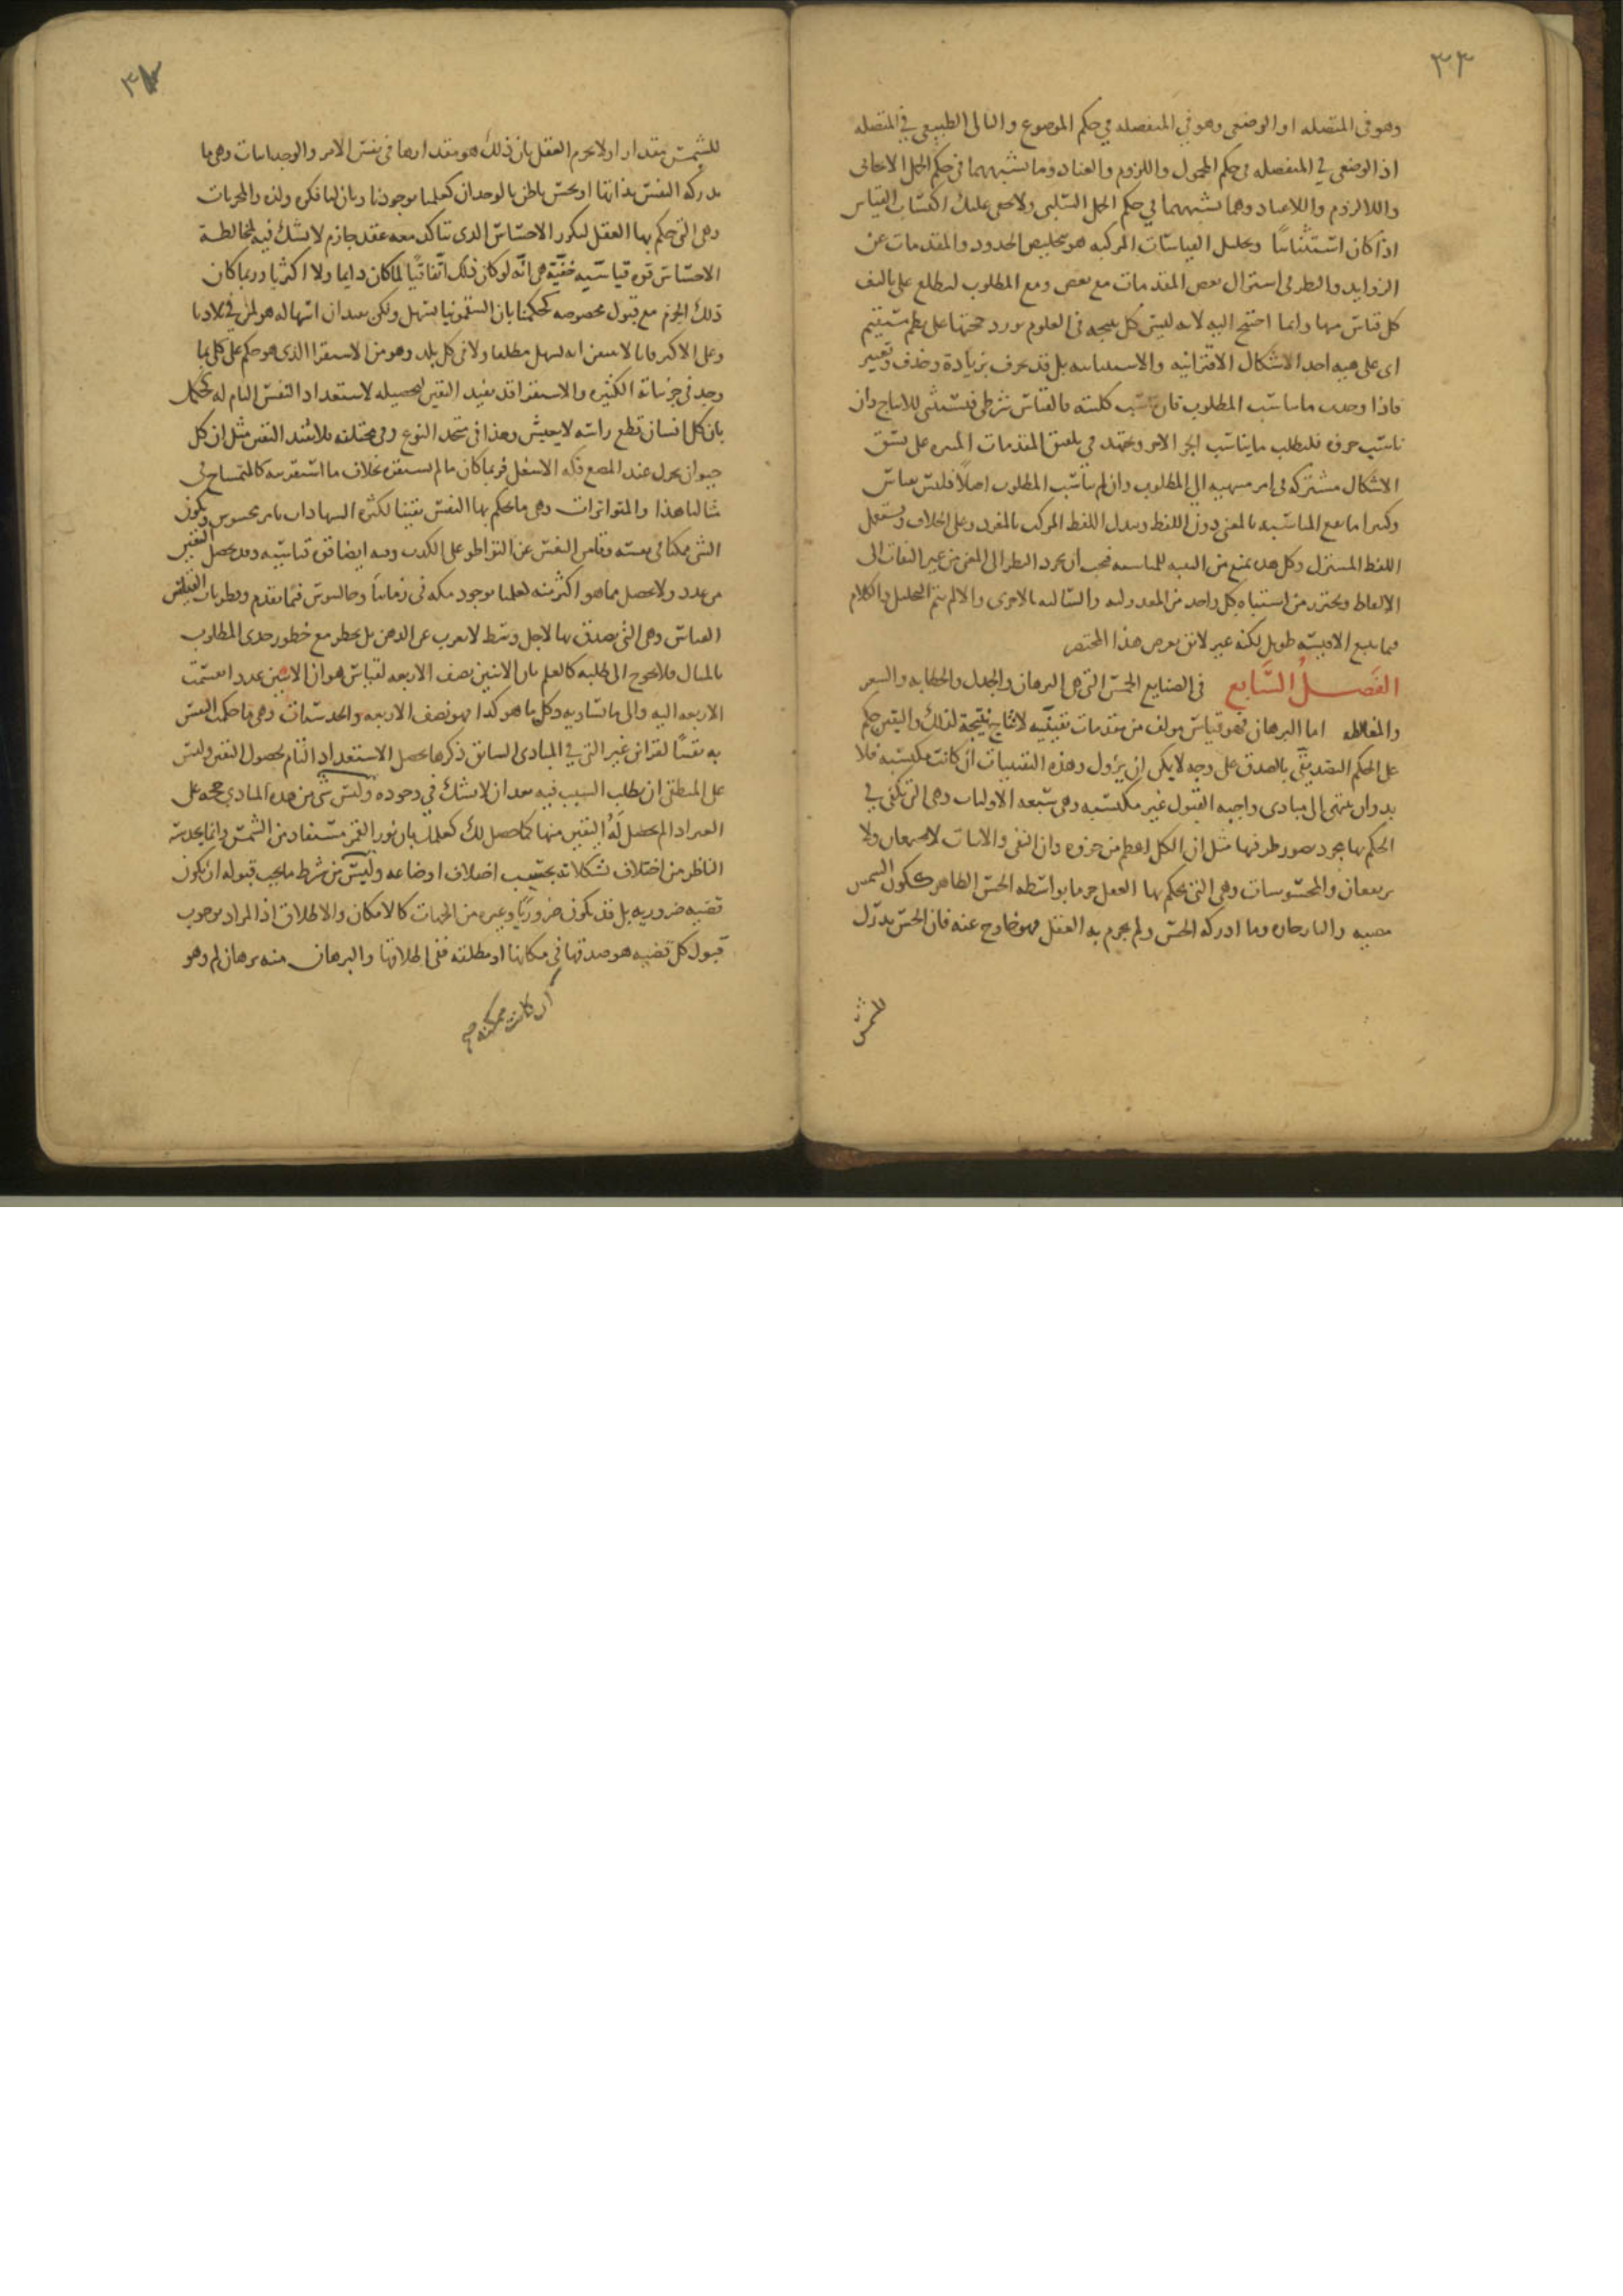 ٣٣
وهو فى المتصله او الوضعى وهو فى المنفصله فى حكم الموضوع والتالى الطبيعى فى المتصله
اذ الوضعى فى المنفصله فى حكم المحمول واللزوم والعناد وما يشبههما فى حكم الحمل الايجابى
واللالزوم واللاعناد وما يشبههما فى حكم الحمل السلبى ولا يخفى عليك اكتساب القياس
اذا كان استثنائيا وتحليل القياسات المركبه هو تخليص الحدود والمقدمات عن
الزوايد والنظر فى اشتراك بعض المقدمات مع بعض ومع المطلوب ليطلع على تاليف
كل قياس منها وانما احتيج اليه لانه ليس كل نتيجه فى العلوم تورد حجتها على نظم مستقيم
اى على هيه احد الاشكال الاقترانيه والاستثنائيه بل قد يحرف بزيادة وحذف وتغيير
فاذا وجدت ما يناسب المطلوب فان ناسب كليته فالقياس شرطى فيستثنى للانتاج وان
ناسب جزوه فليطلب ما يناسب الجز الاخر ويجتهد فى تلفيق المقدمات المميزه على نسق
الاشكال مشتركه فى امر منتهيه الى المطلوب وان لم يناسب المطلوب اصلا فليس بقياس
وكثيرا ما يقع المناسبه بالمعنى دون اللفظ ويبدل اللفظ المركب بالمفرد وعلى الخلاف ويستعمل
اللفظ المشترك وكل هذه يمنع من التنبه للمناسبه فيجب ان يجرد النظر الى المعنى من غير التفات الى
الالفاظ ويحترز من اشتباه كل واحد من المعدوليه والسالبه بالاخرى والا لم يتم التحليل والكلام
فيما يتبع الاقيسه طويل لكنه غير لائق بغرض هذا المختصر
الفصل السابع فى الصنايع الخمس التى هى البرهان والجدل والخطابه والشعر
والمغالطه اما البرهان فهو قياس مولف من مقدمات يقينيه لانتاج نتيجة لذلك واليقين حكم
على الحكم التصديقى بالصدق على وجه لا يمكن ان يزول وهذه اليقينيات ان كانت مكتسبه فلا
بد وان ينتهى الى مبادى واجبه القبول غير مكتسبه وهى سبعه الاوليات وهى التى تكفى فى
الحكم بها مجرد تصور طرفيها مثل ان الكل اعظم من جزوه وان النفى والاثبات لا يجتمعان ولا
يرتفعان والمحسوسات وهى التى يحكم بها العقل جزما بواسطه الحس الظاهر ككون الشمس
مضيه والنار حاره وما ادركه الحس ولم يجزم به العقل فهو خارج عنه فان الحس يدرك
للشمس
٣٤
للشمس مقدارا ولا يجزم العقل بان ذلك هو مقدارها فى نفس الامر والوجدانيات وهى ما
يدركه النفس بذاتها او بحس باطن بالوجدان كعلمنا بوجودنا وبان لنا فكره ولذه والمجربات
وهى التى حكم بها العقل لتكرر الاحساس الذى يتاكد معه عقد جازم لا يشك فيه لمخالطة
الاحساس قوه قياسيه خفية هى انه لو كان ذلك اتفاقيا لما كان دايما ولا اكثريا وربما كان
ذلك الجزم مع قبول مخصوصه كحكمنا بان السقمونيا يسهل ولكن بعد ان اسهاله هو لمن فى بلادنا
وعلى الاكثر فانا لا نتيقن انه يسهل مطلقا ولا فى كل بلد وهو من الاستقرا الذى هو حكم على كلى بما
وجد فى جزئياته الكثيره والاستقرا قد يفيد اليقين لتحصيله لاستعداد النفس التام له كحكمك
بان كل انسان قطع راسه لا يعيش وهذا فى متحد النوع وفى مختلفه فلا يفيد اليقين مثل ان كل
حيوان يحرك عند المضغ فكه الاسفل فربما كان ما لم يستقره بخلاف ما استقريته كالتمساح فى
مثالنا هذا والمتواترات وهى ما يحكم بها النفس يقينا لكثره الشهادات بامر محسوس ويكون
الشى ممكنا فى نفسه وتامن النفس عن التواطو على الكذب وفيه ايضا قوه قياسيه وقد يحصل اليقين
من عدد ولا يحصل مما هو اكثر منه لعلمنا بوجود مكه فى زماننا وجالينوس فيما تقدم وفطريات
القياس وهى التى يصدق بها لاجل وسط لا يعزب عن الذهن بل يخطر مع خطور حدى المطلوب
بالبال فلا يحوج الى طلبه كالعلم بان الاثنين نصف الاربعه لقياس هو ان الاثنين عدد انقسمت
الاربعه اليه والى ما يساويه وكل ما هو كذا فهو نصف الاربعه والحدسيات وهى ما حكمت النفس
به يقينا لقرائن غير التى فى المبادى السابق ذكرها يحصل الاستعداد التام لحصول اليقين وليس
على المنطقى ان يطلب السبب فيه بعد ان لا يشك فى وجوده وليس شى من هذه المبادى حجه على
الغير اذا لم يحصل له اليقين منها كما حصل لك كعلمك بان نور القمر مستفاد من الشمس وانما يحدسه
الناظر من اختلاف تشكلاته بحسب اختلاف اوضاعه وليس من شرط ما يجب قبوله ان يكون
قضيه ضروريه بل قد يكون ضروريا وغيره من الجهات كالامكان والاطلاق اذ المراد بوجوب
قبول كل قضيه هو صدقها فى امكانها او مطلقه ففى اطلاقها والبرهان منه برهان لم وهو
ان كانت ممكنه صح